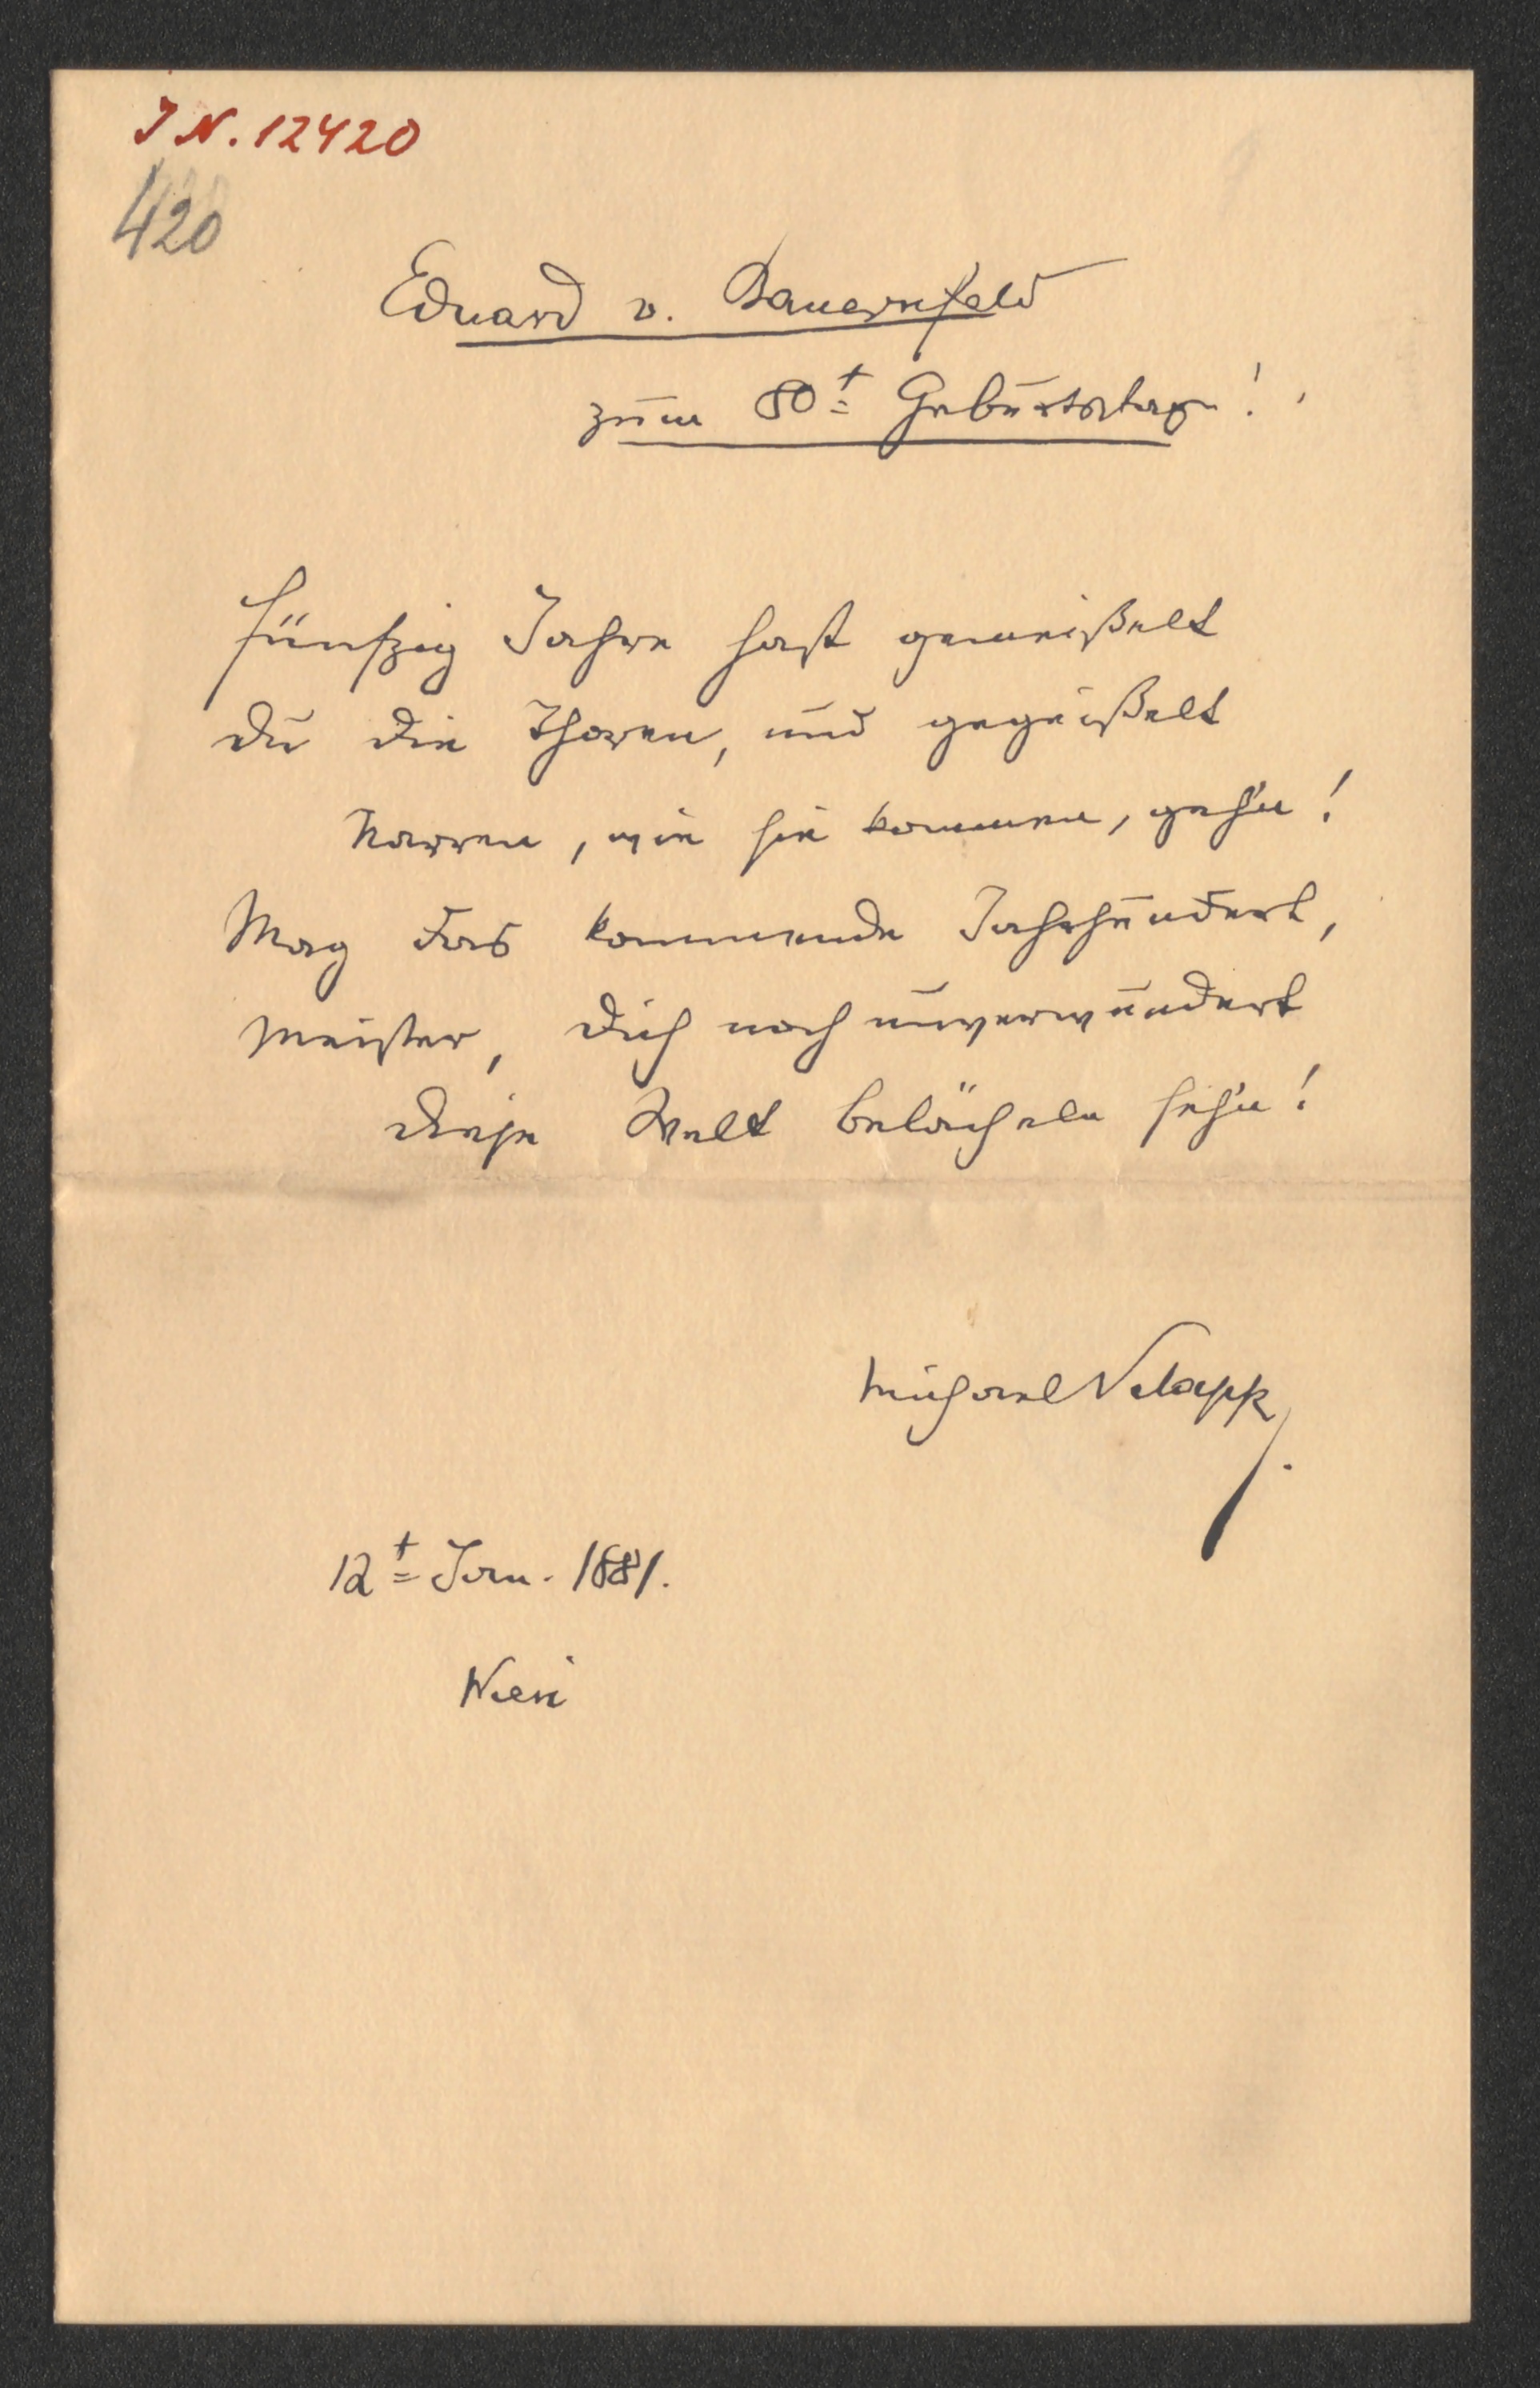 I N. 12420
420
Eduard v. Bauernfeld
zum 80t Geburtstage!
Fünfzig Jahre hast gemeißelt
Du die Thoren, und gegeißelt
Narren, wie sie kommen, geh'n!
Mag das kommende Jahrhundert,
Meister, Dich noch unverwundert
Diese Welt belächeln seh'n!
Michael
12t Jan. 1881.
Wien